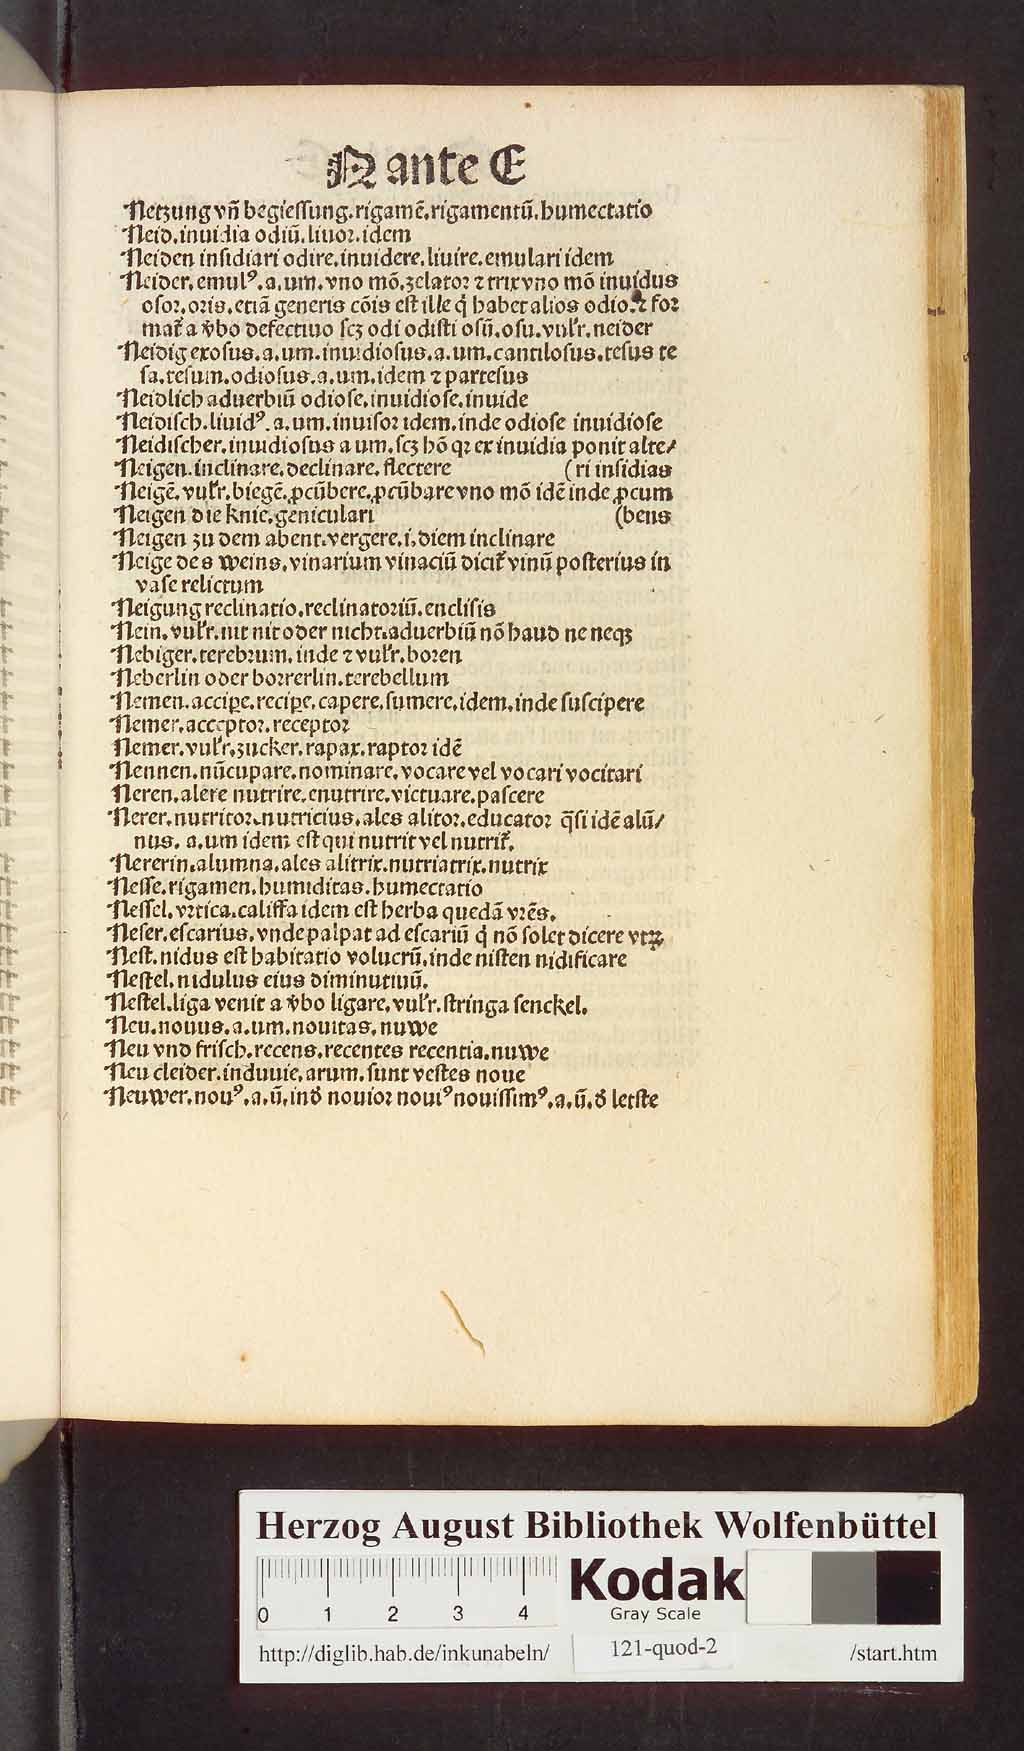 N ante E
Netzung vñ begiessung.rigamē.rigamentū.humectatio
Neid.inuidia odiū.liuor.idem
Neiden insidiari odire.inuidere.liuire.emulari idem
Neider.emulꝰ.a.um.vno mō.zelator ⁊ trix vno mō inuidus
osor.oris.etiā generis cōis est ille q̇ habet alios odio.⁊ for
mat̃ a v̇bo defectiuo scꝫ odi odisti osū.osu.vul'r.neider
Neidig exosus.a.um.inuidiosus.a.um.cantilosus.tesus te
sa.tesum.odiosus.a.um.idem ⁊ partesus
Neidlich aduerbiū odiose.inuidiose.inuide
Neidisch.liuidꝰ.a.um.inuisor idem.inde odiose inuidiose
Neidischer.inuidiosus a um.scꝫ hō qꝛ ex inuidia ponit alte/
Neigen.inclinare.declinare.flectere (ri insidias
Neigē.vul'r.biegē.ꝓcūbere.ꝓcūbare vno mō idē inde ꝓcum
Neigen die knie.geniculari (bens
Neigen zu dem abent.vergere.i.diem inclinare
Neige des weins.vinarium vinaciū dicit̃ vinū posterius in
vase relictum
Neigung reclinatio.reclinatoriū.enclisis
Nein.vul'r.nit nit oder nicht.aduerbiū nō haud ne neqꝫ
Nebiger.terebrum.inde ⁊ vul'r.boren
Neberlin oder borrerlin.terebellum
Nemen.accipe.recipe.capere.sumere.idem.inde suscipere
Nemer.acceptor.receptor
Nemer.vul'r.zucker.rapax.raptor idē
Nennen.nūcupare.nominare.vocare vel vocari vocitari
Neren.alere nutrire.enutrire.victuare.pascere
Nerer.nutritor.nutricius.ales alitor.educator q̄si idē alū/
nus.a.um idem est qui nutrit vel nutrit̃.
Nererin.alumna.ales alitrix.nutriatrix.nutrix
Nesse.rigamen.humiditas.humectatio
Nessel.vrtica.califfa idem est herba quedā vrēs.
Neser.escarius.vnde palpat ad escariū q̇ nō solet dicere vtꝝ
Nest.nidus est habitatio volucrū.inde nisten nidificare
Nestel.nidulus eius diminutiuū.
Nestel.liga venit a v̇bo ligare.vul'r.stringa senckel.
Neu.nouus.a.um.nouitas.nuwe
Neu vnd frisch.recens.recentes recentia.nuwe
Neu cleider.induuie.arum.sunt vestes noue
Neuwer.nouꝰ.a.ū.inđ nouior nouiꝰ nouissimꝰ.a.ū.đ letste
Herzog August Bibliothek Wolfenbüttel
0 1 2 3 4
Kodak
Gray Scale
http://diglib.hab.de/inkunabeln/ 121-quod-2 /start.htm